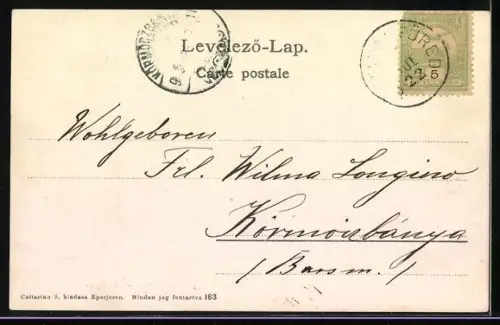 Levelező-Lap.
Carte postale
FÜRED
JUL
22
5
Wohlgeboren
Frl. Wilma Longino
Körmöczbánya
(Bars m.)
Cattarino S. kiadása Eperjesen. Minden jog fentartva 163